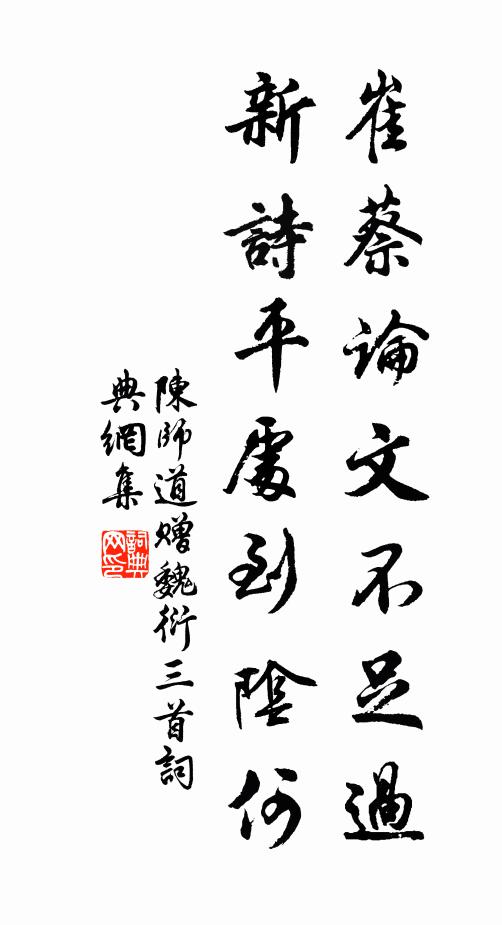 崔蔡論文不足過
新詩平處到陰何
陳師道贈魏衍三首詞
典網集
詞典网印